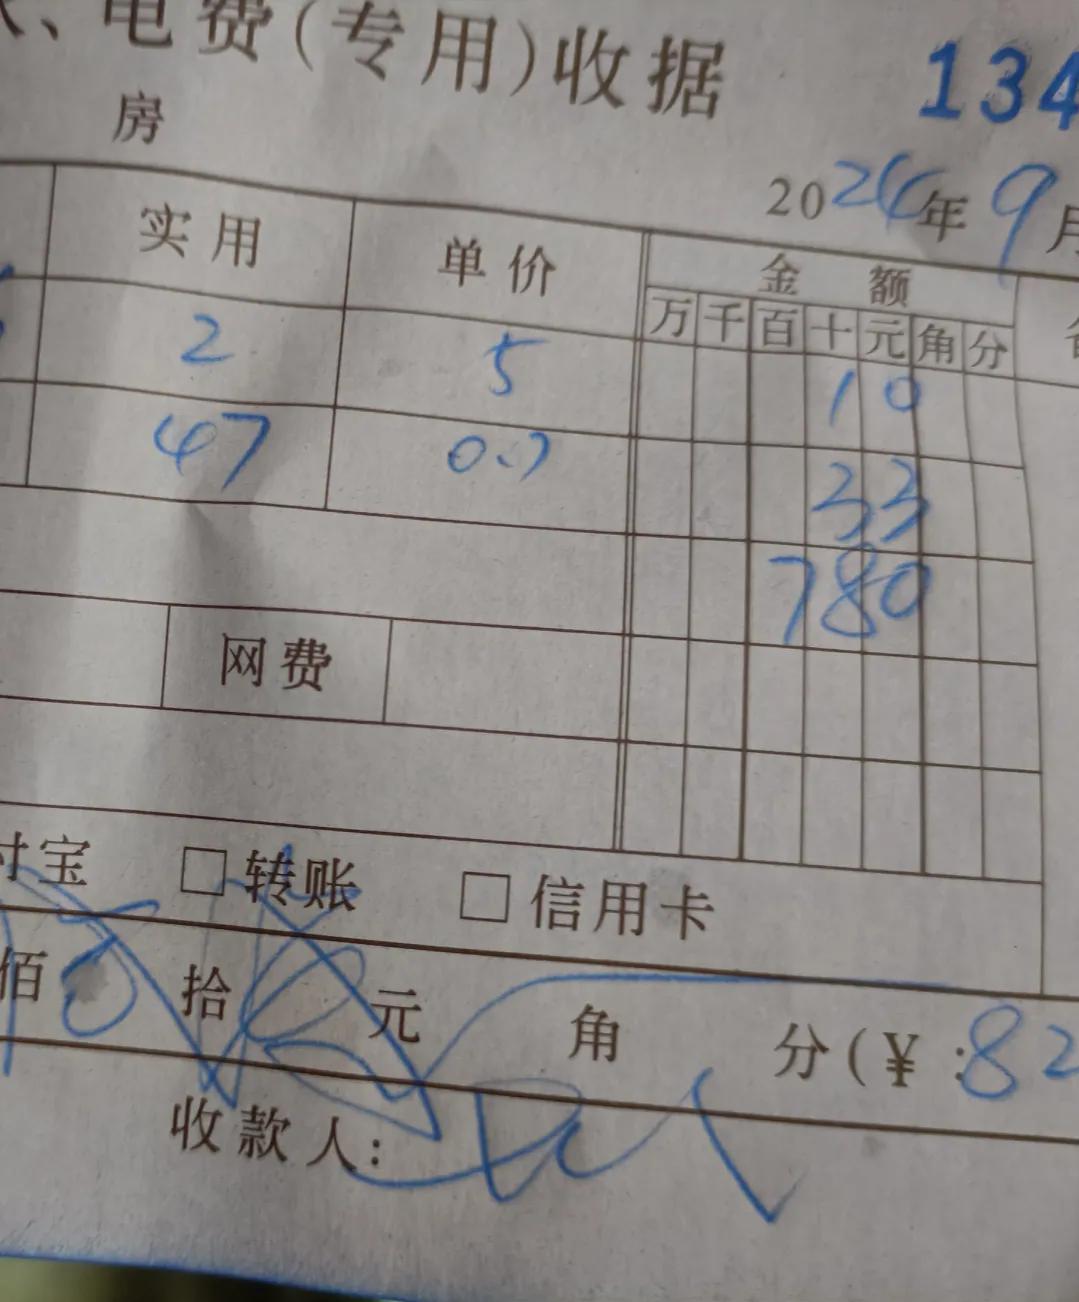 、电费(专用)收据 134
房
2024年9月
实用 单价 金额
万千百十元角分
2 5 10
47 0.7 33
780
网费
付宝 □转账 □信用卡
佰 拾 元 角 分(¥:82
收款人: